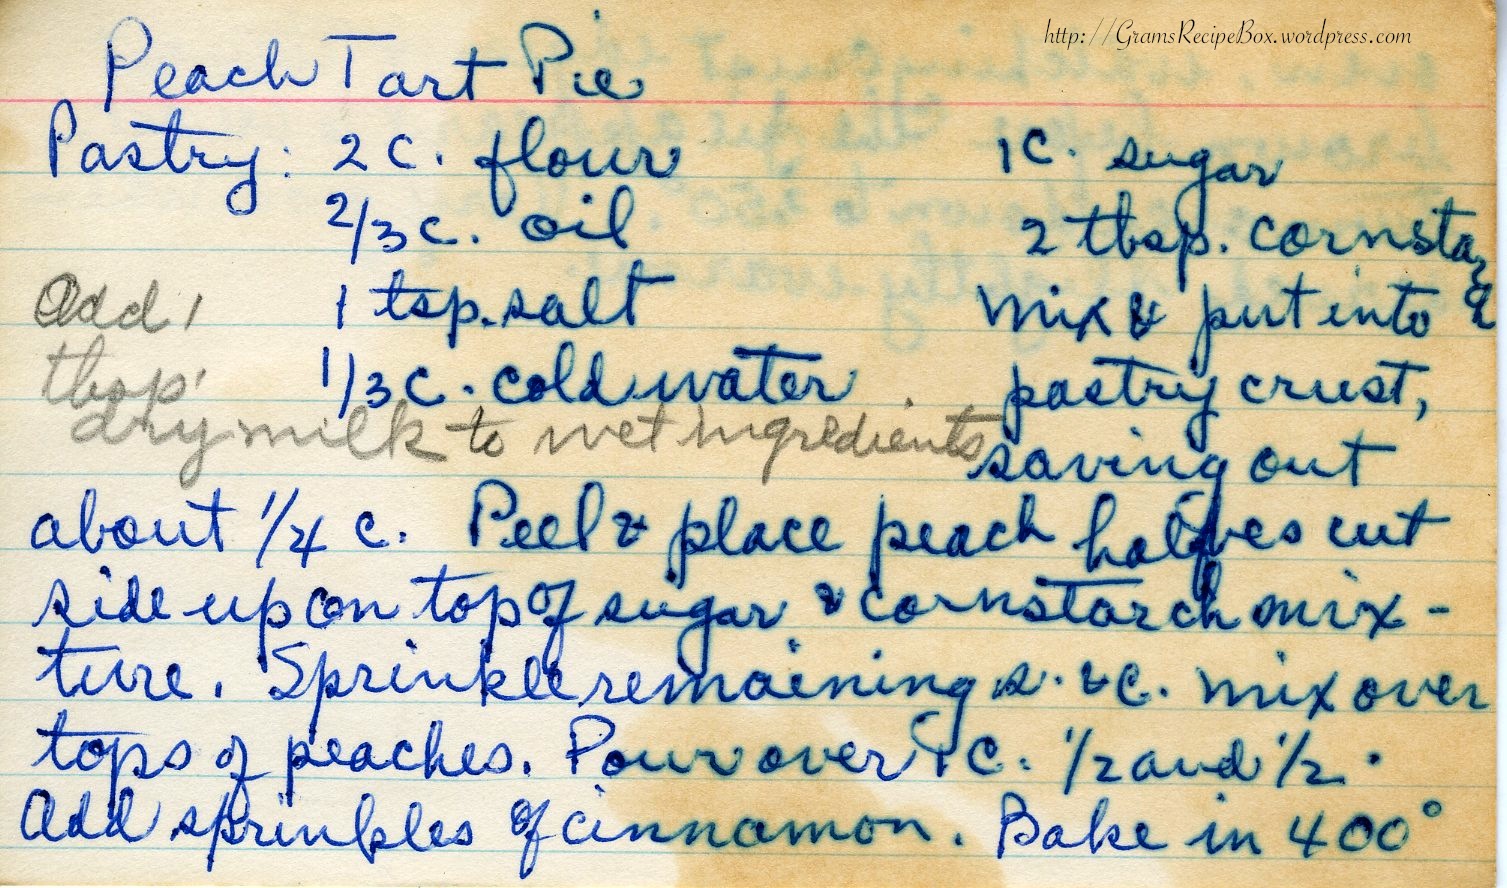 http://GramsRecipeBox.wordpress.com
Peach Tart Pie
Pastry: 2 c. flour
2/3 c. oil
1 tsp. salt
1/3 c. cold water
Add 1
tbsp.
dry milk to wet ingredients
1 c. sugar
2 tbsp. cornstarch
Mix & put into
pastry crust,
saving out
about 1/4 c. Peel & place peach halves cut
side up on top of sugar & cornstarch mix-
ture. Sprinkle remaining s. & c. mix over
tops of peaches. Pour over 1 c. 1/2 and 1/2.
Add sprinkles of cinnamon. Bake in 400°